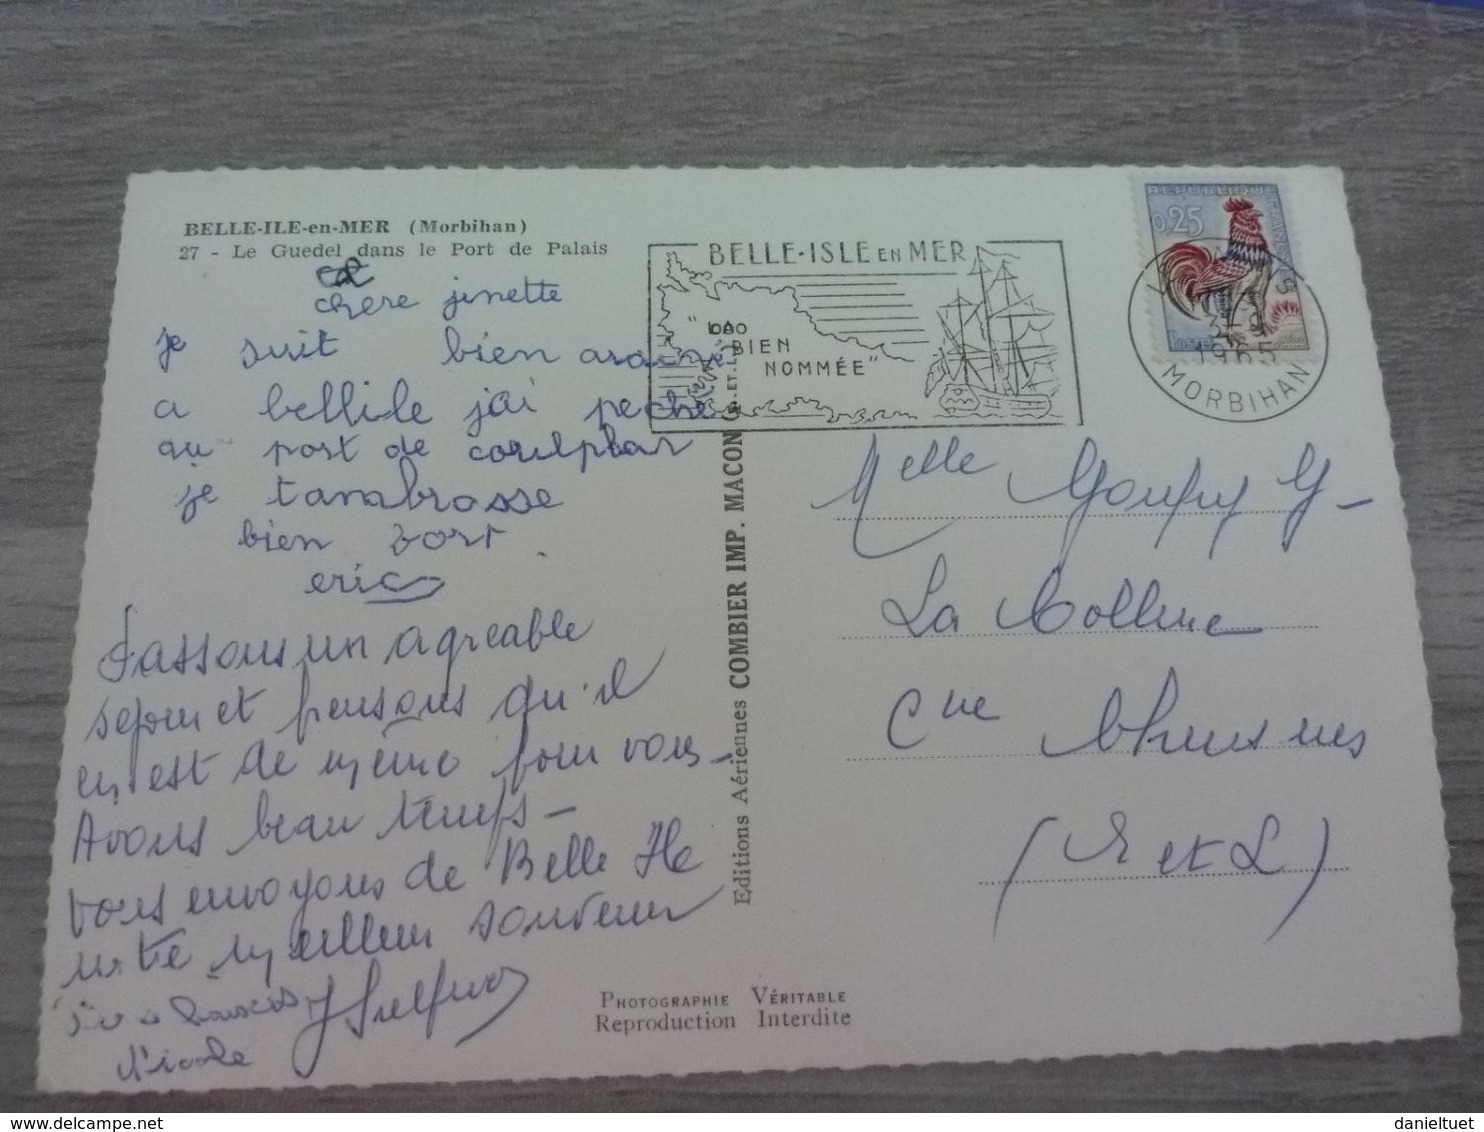 BELLE-ILE-en-MER (Morbihan)
27 - Le Guedel dans le Port de Palais
chere jinette
je suit bien
a bellile jai peche
au port de
je tambrasse
bien fort
eric
Passons un agreable
sejour et pensons qu'il
en est de même pour vous -
Avons beau temps -
Vous envoyons de Belle Ile
notre meilleur souvenir
l'école
Editions Aériennes COMBIER IMP. MACON (S.-ET-L.)
PHOTOGRAPHIE VÉRITABLE
Reproduction Interdite
BELLE-ISLE EN MER
"LA
BIEN
NOMMÉE"
REPUBLIQUE FRANÇAISE
0,25
POSTES
1965
MORBIHAN
Melle G -
La Colline
Cne
(E et L)
delcampe.net
danieltuet